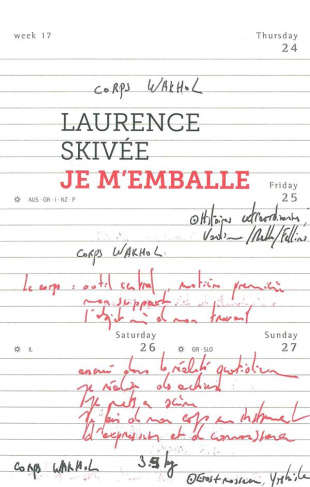 week 17
Thursday
24
CORPS WARHOL
LAURENCE
SKIVÉE
JE M'EMBALLE
Friday
25
AUS · GR · I · NZ · P
Histoires extraordinaires,
/Fellini
CORPS WARHOL
Le corps : outil central, matière première
mon support
l'objet de mon travail
Saturday
Sunday
26
GR · SLO
27
IL
dans la réalité quotidienne
je réalise des actions
je mets en scène
je fais de mon corps un instrument
d'expression et de connaissance
CORPS WARHOL
kg